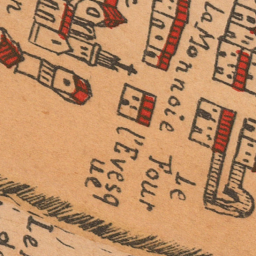 la Monnoie
le Four
l'Evesq
ue